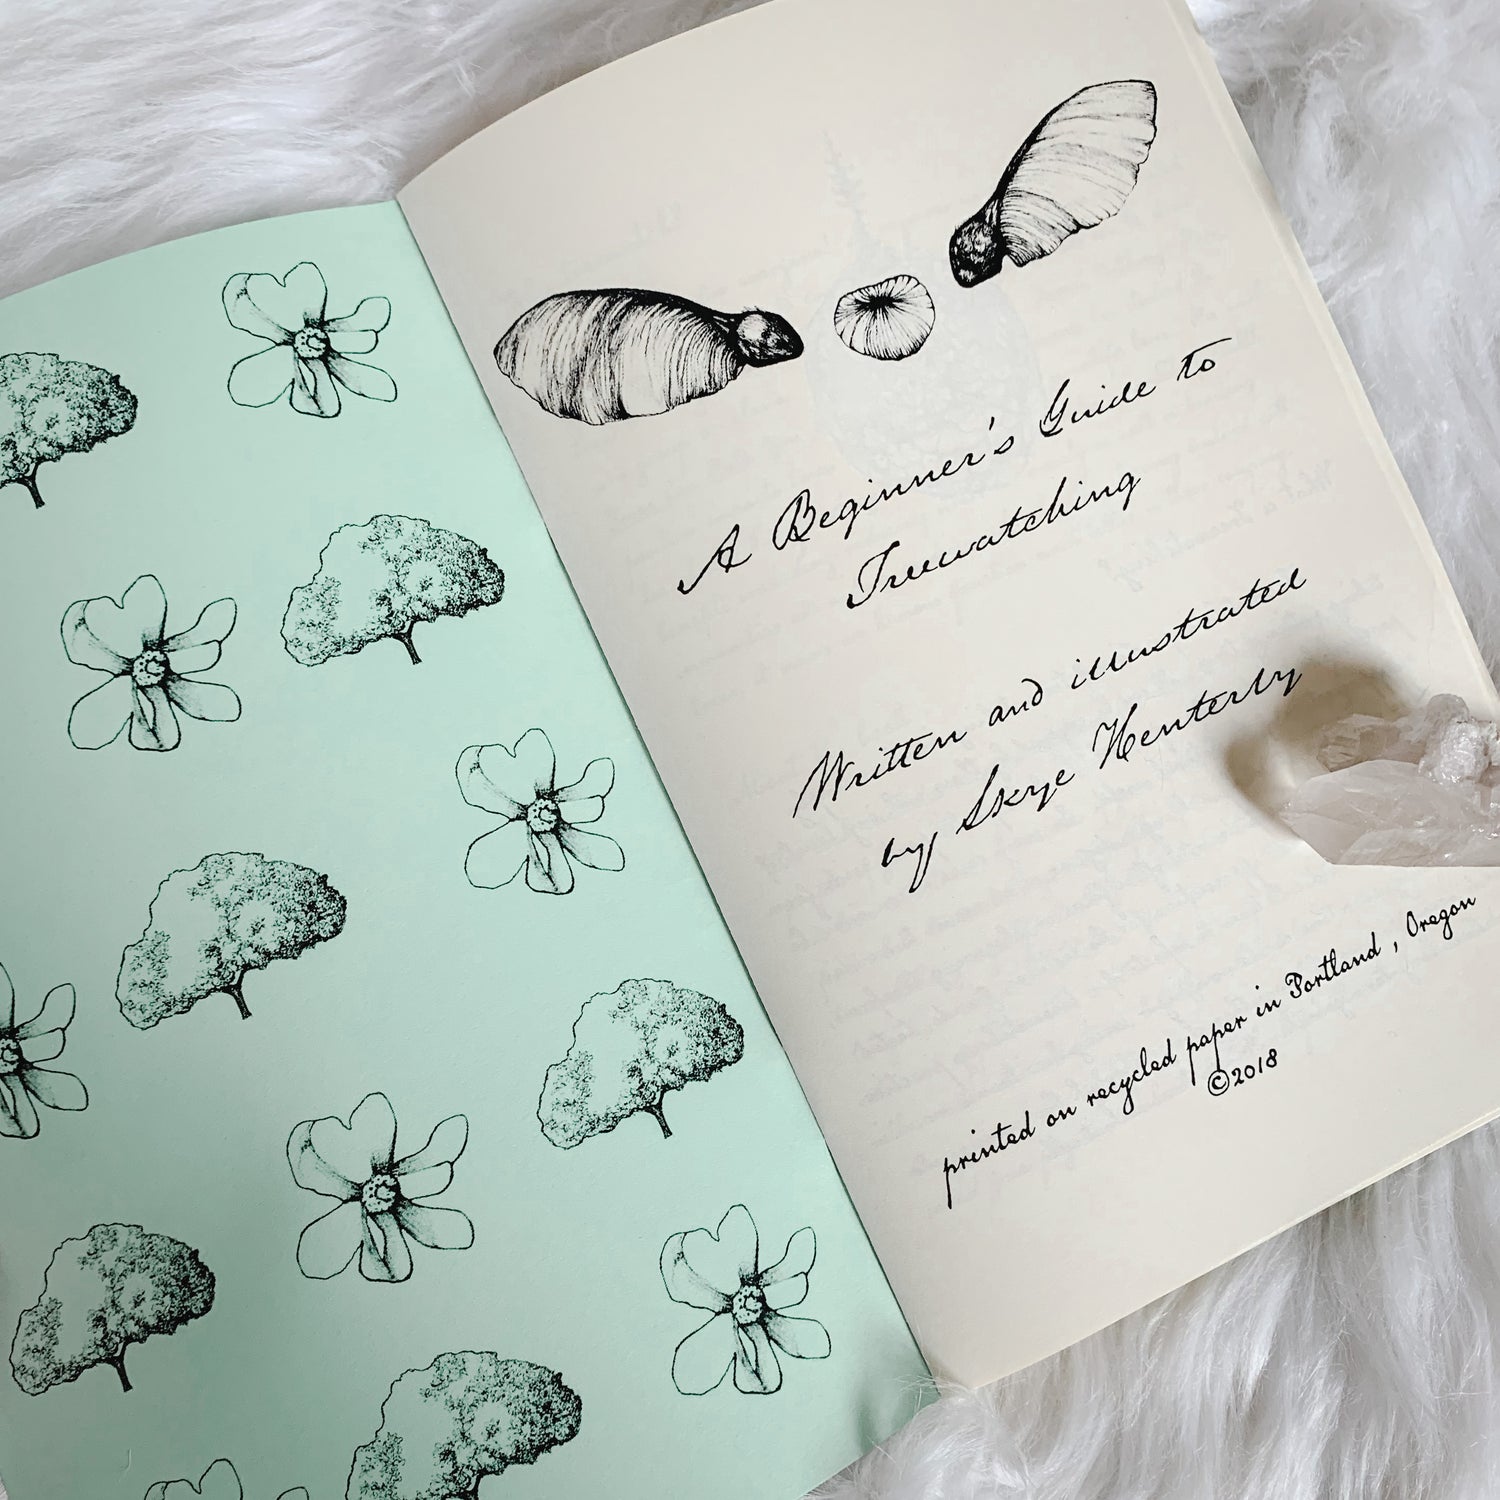 A Beginner's Guide to
Treewatching
Written and illustrated
by Skye Henterly
printed on recycled paper in Portland , Oregon
©2018